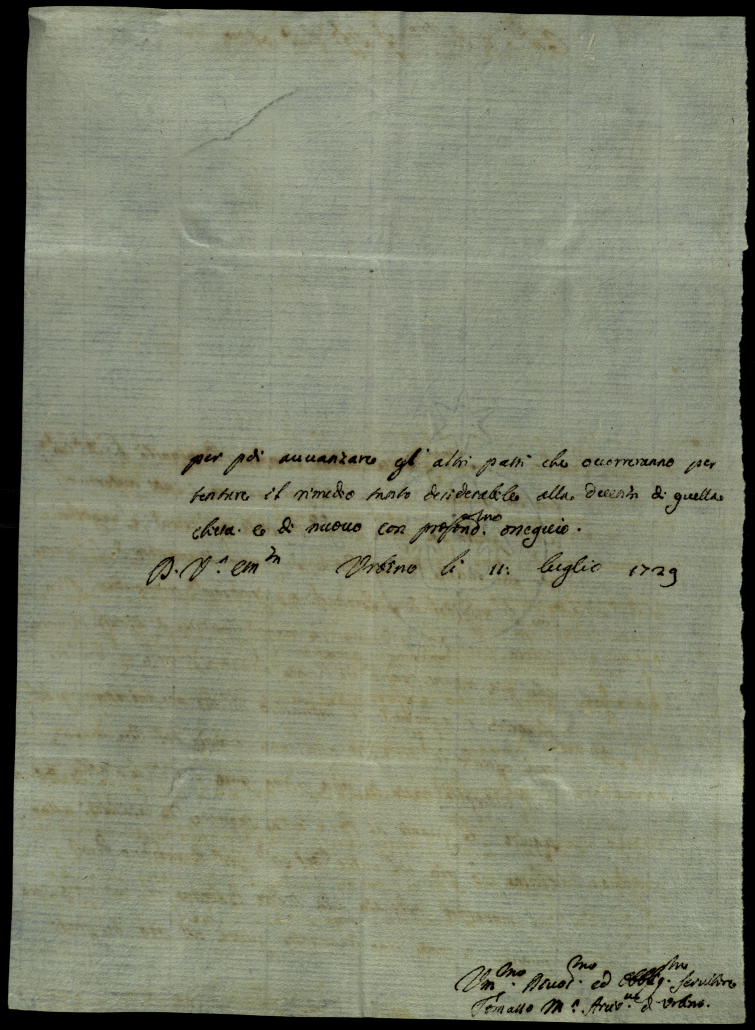 per poi avvanzare gli altri passi che occorreranno per
tentare il rimedio tanto desiderabile alla decenza di quella
chiesa. e di nuovo con profond.mo ossequio.
D. V.a Em.za Urbino li 11: luglio 1729
Um.mo Devot.mo ed Obblig.mo Servitore
Tomaso M.a Arciv.ue d'Urbino.